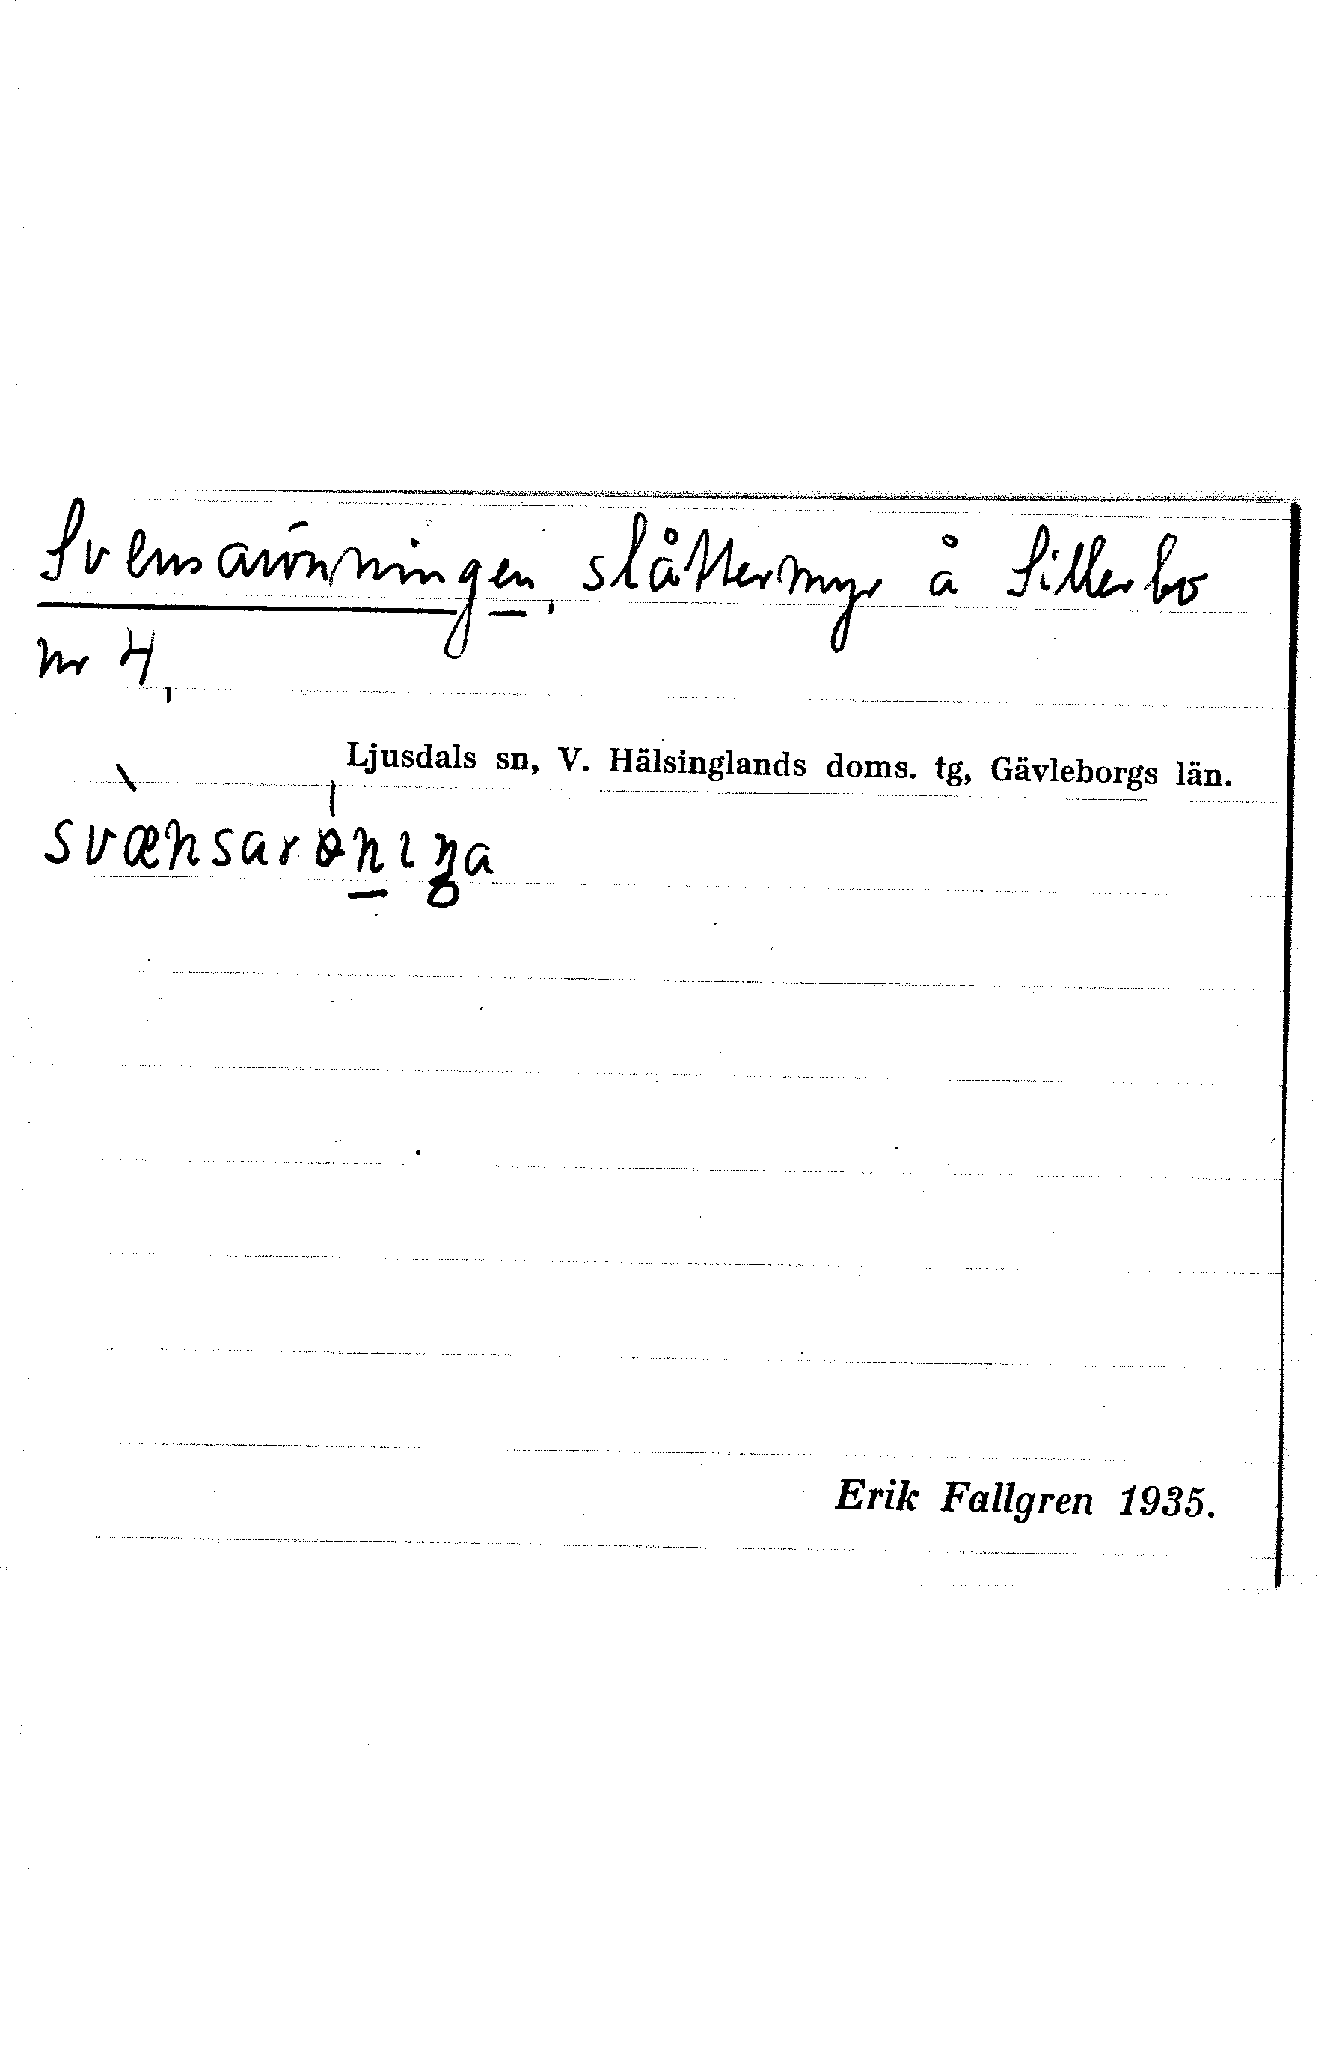 Svensarönningen, slåttermyr å Sillerbo
nr 4,
Ljusdals sn, V. Hälsinglands doms. tg, Gävleborgs län.
svænsarөnıŋa
Erik Fallgren 1935.